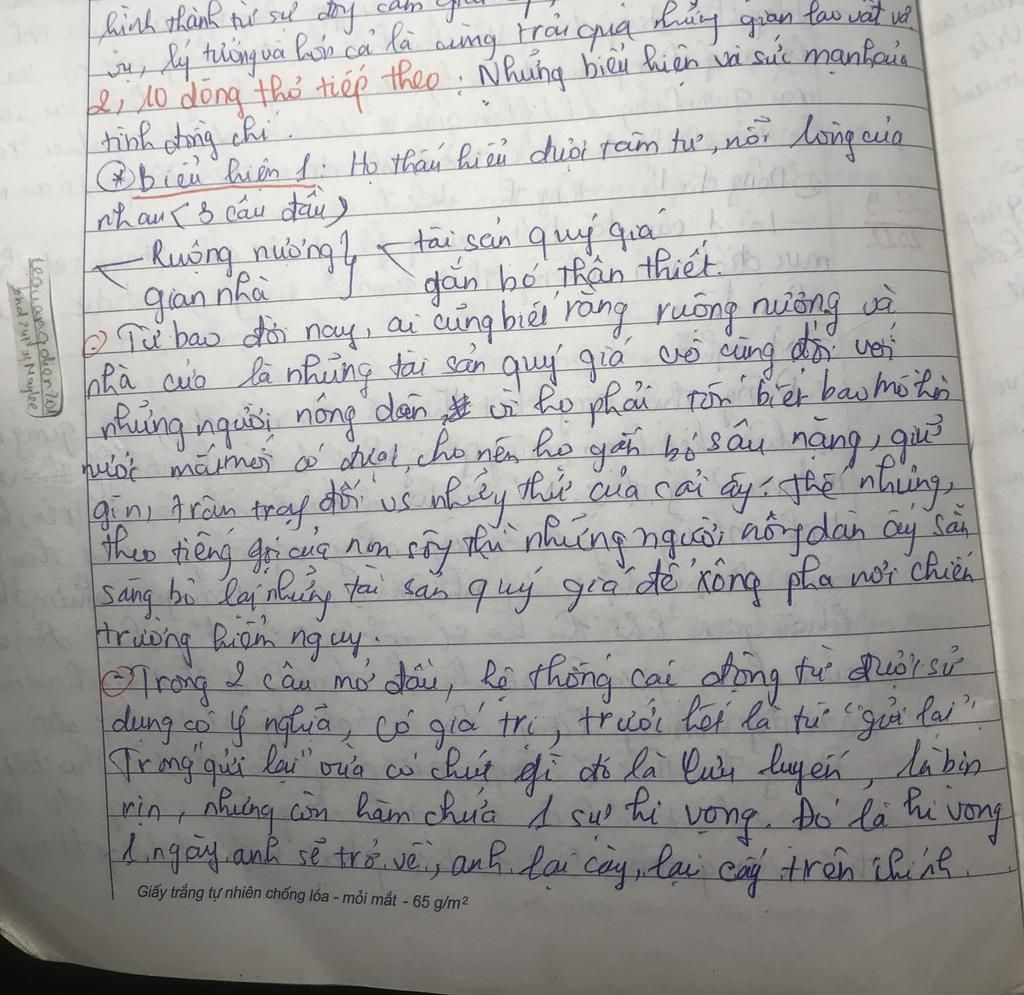 hình thành từ sự đồng cảm giai
vụ, lý tưởng và hơn cả là cùng trải qua những gian lao vất vả.
2, 10 dòng thơ tiếp theo: Những biểu hiện và sức mạnh của
tình đồng chí.
* biểu hiện 1: Họ thấu hiểu được tâm tư, nỗi lòng của
nhau (3 câu đầu)
Ruộng nương } tài sản quý giá
gian nhà } gắn bó thân thiết.
- Từ bao đời nay, ai cũng biết rằng ruộng nương và
nhà cửa là những tài sản quý giá vô cùng đối với
những người nông dân vì họ phải tốn biết bao mồ hôi
nước mắt mới có được, cho nên họ gắn bó sâu nặng, giữ
gìn, trân trọng đối vs những thứ của cải ấy. thế nhưng,
theo tiếng gọi của non sông thì những người nông dân ấy sẵn
sàng bỏ lại những tài sản quý giá để xông pha nơi chiến
trường hiểm nguy.
- Trong 2 câu mở đầu, hệ thống cai động từ được sử
dụng có ý nghĩa, có giá trị, trước hết là từ "gửi lại".
Trong "gửi lại" vừa có chút gì đó là lưu luyến, là bịn
rịn, nhưng còn hàm chứa 1 sự hi vọng. Đó là hi vọng
1 ngày anh sẽ trở về, anh lại cày, lại cấy trên chính
Giấy trắng tự nhiên chống lóa - mỏi mắt - 65 g/m²